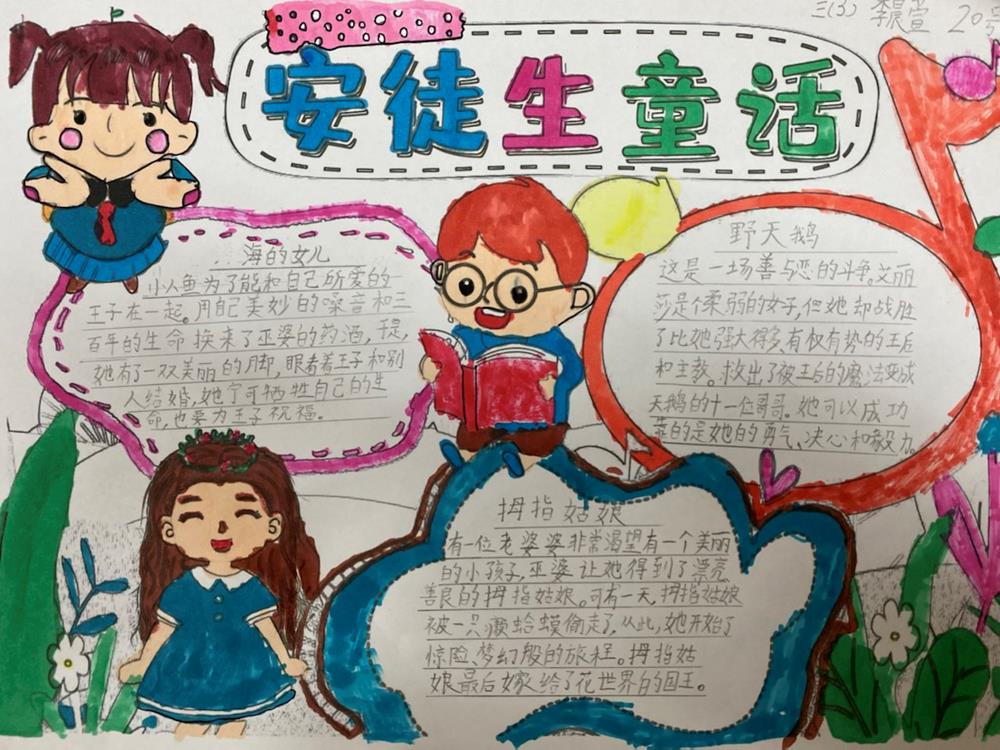 三(3) 李晨萱 20号
安徒生童话
海的女儿
小人鱼为了能和自己所爱的
王子在一起。用自己美妙的嗓音和三
百年的生命换来了巫婆的药酒,于是,
她有了一双美丽的脚,眼看着王子和别
人结婚,她宁可牺牲自己的生
命,也要为王子祝福。
野天鹅
这是一场善与恶的斗争,艾丽
莎是个柔弱的女子,但她却战胜
了比她强大得多、有权有势的王后
和主教。救出了被王后的魔法变成
天鹅的十一位哥哥。她可以成功
靠的是她的勇气、决心和毅力。
拇指姑娘
有一位老婆婆非常渴望有一个美丽
的小孩子,巫婆让她得到了漂亮
善良的拇指姑娘。可有一天,拇指姑娘
被一只癞蛤蟆偷走了,从此,她开始了
惊险、梦幻般的旅程。拇指姑
娘最后嫁给了花世界的国王。